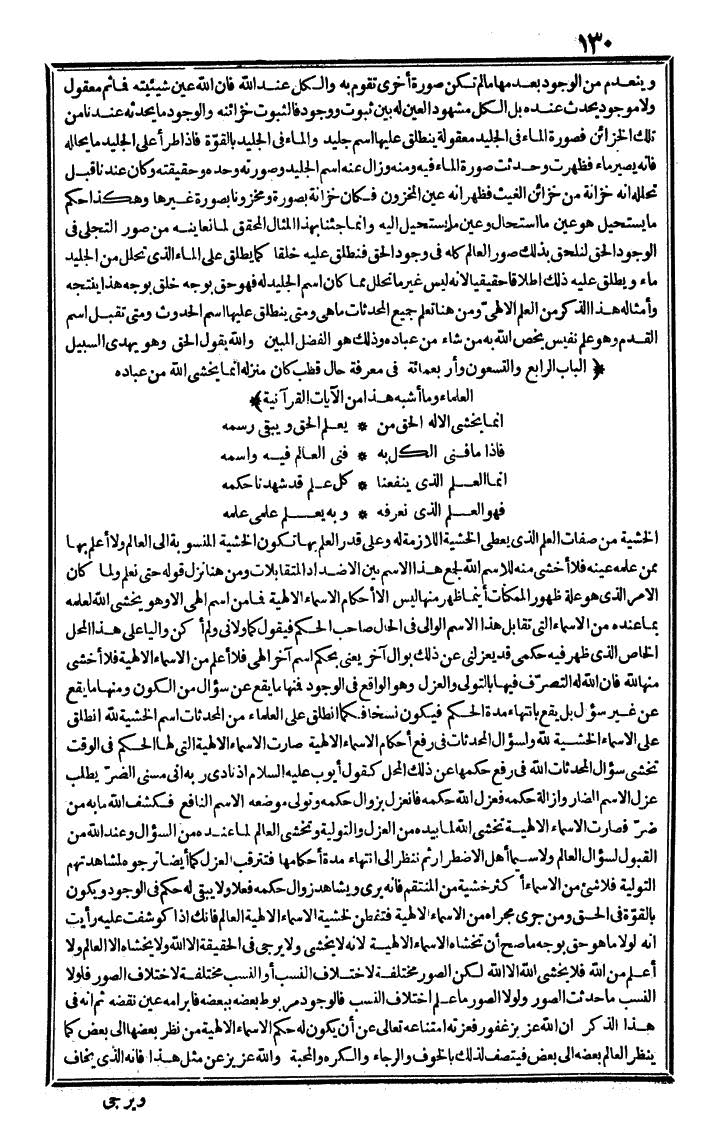 ١٣٠
وينعدم من الوجود بعدمها مالم تكن صورة أخرى تقوم به والكل عند الله فان الله عين شيئيته فمأثم معقول
ولا موجود يحدث عنده بل الكل مشهود العين له بين ثبوت ووجود فالثبوت خزائنه والوجود ما يحدثه عندنا من
تلك الخزائن فصورة الماء فى الجليد معقولة ينطلق عليها اسم جليد والماء فى الجليد بالقوّة فاذا طرأ على الجليد ما يحلله
فانه يصير ماء فظهرت وحدثت صورة الماء فيه ومنه وزال عنه اسم الجليد وصورته وحده وحقيقته وكان عندنا قبل
تحلله انه خزانة من خزائن الغيث فظهر انه عين المخزون فكان خزانة بصورة ومخزونا بصورة غيرها وهكذا حكم
ما يستحيل هو عين ما استحال وعين ما يستحيل اليه وانما جئنا بهذا المثال المحقق لما نعاينه من صور التجلى فى
الوجود الحق لنلحق بذلك صور العالم كله فى وجود الحق فنطلق عليه خلقا كما يطلق على الماء الذى تحلل من الجليد
ماء ويطلق عليه ذلك اطلاقا حقيقيا لانه ليس غير ما تحلل مما كان اسم الجليد له فهو حق بوجه خلق بوجه هذا ينتجه
وأمثاله هذا الذكر من العلم الالهىّ ومن هنا تعلم جميع المحدثات ماهى ومتى ينطلق عليها اسم الحدوث ومتى تقبل اسم
القدم وهو علم نفيس يخص الله به من شاء من عباده وذلك هو الفضل المبين والله يقول الحق وهو يهدى السبيل
﴿ الباب الرابع والتسعون وأربعمائة فى معرفة حال قطب كان منزله انما يخشى الله من عباده
العلماء وما أشبه هذا من الآيات القرآنية ﴾
انما يخشى الاله الحق من * يعلم الحق ويبقى رسمه
فاذا ما فنى الكل به * فنى العالم فيه واسمه
انما العلم الذى ينفعنا * كل علم قد شهدنا حكمه
فهو العلم الذى نعرفه * وبه يعلم علمى علمه
الخشية من صفات العلم الذى يعطى الخشية اللازمة له وعلى قدر العلم بها تكون الخشية المنسوبة الى العالم ولا أعلم بها
ممن علمه عينه فلا أخشى منه لله للاسم الله لجمع هذا الاسم بين الاضداد المتقابلات ومن هنا نزل قوله حتى نعلم ولما كان
الامر الذى هو علة ظهور الممكنات أيتما ظهر منها ليس الا أحكام الاسماء الالهية فمامن اسم الهى الا وهو يخشى الله لعلمه
بما عنده من الاسماء التى تقابل هذا الاسم الوالى فى الحال صاحب الحكم فيقول كما ولانى ولم أكن واليا على هذا المحل
الخاص الذى ظهر فيه حكمى قد يعزلنى عن ذلك بوال آخر يعنى بحكم اسم آخر الهى فلا أعلم من الاسماء الالهية فلا أخشى
منها لله فان الله له التصرّف فيها بالتولى والعزل وهو الواقع فى الوجود فمنها ما يقع عن سؤال من الكون ومنها ما يقع
عن غير سؤال بل يقع بانتهاء مدة الحكم فيكون نسخا فكما انطلق على العلماء من المحدثات اسم الخشية لله انطلق
على الاسماء الخشية لله ولسؤال المحدثات فى رفع أحكام الاسماء الالهية صارت الاسماء الالهية التى لها الحكم فى الوقت
تخشى سؤال المحدثات الله فى رفع حكمها عن ذلك المحل كقول أيوب عليه السلام اذ نادى ربه انى مسنى الضرّ يطلب
عزل الاسم الضار وازالة حكمه فعزل الله حكمه فانعزل بزوال حكمه وتولى موضعه الاسم النافع فكشف الله ما به من
ضرّ فصارت الاسماء الالهية تخشى الله لما بيده من العزل والتولية وتخشى العالم لما عنده من السؤال وعند الله من
القبول لسؤال العالم ولا سيما أهل الاضطرار ثم ننظر الى انتهاء مدة أحكامها فتترقب العزل كما أيضا ترجوه لمشاهدتهم
التولية فلا شئ من الاسماء أكثر خشية من المنتقم فانه يرى ويشاهد زوال حكمه فعلا ولا يبقى له حكم فى الوجود ويكون
بالقوّة فى الحق ومن جوى مجراه من الاسماء الالهية فتفطن لخشية الاسماء الالهية العالم فانك اذا كوشفت عليه رأيت
انه لولا ما هو حق بوجه ما صح أن تخشاه الاسماء الالهية لانه لا يخشى ولا يرجى فى الحقيقة الا الله ولا يخشاه الا العالم ولا
أعلم من الله فلا يخشى الله الا الله لكن الصور مختلفة لاختلاف النسب أو النسب مختلفة لاختلاف الصور فلولا
النسب ما حدثت الصور ولولا الصور ما علم اختلاف النسب فالوجود مربوط بعضه ببعضه فابرامه عين نقضه ثم انه فى
هذا الذكر ان الله عزيز غفور فعزته امتناعه تعالى عن أن يكون له حكم الاسماء الالهية من نظر بعضها الى بعض كما
ينظر العالم بعضه الى بعض فيتصف لذلك بالخوف والرجاء والكره والمحبة والله عزيز عن مثل هذا فانه الذى يخاف
ويرجى